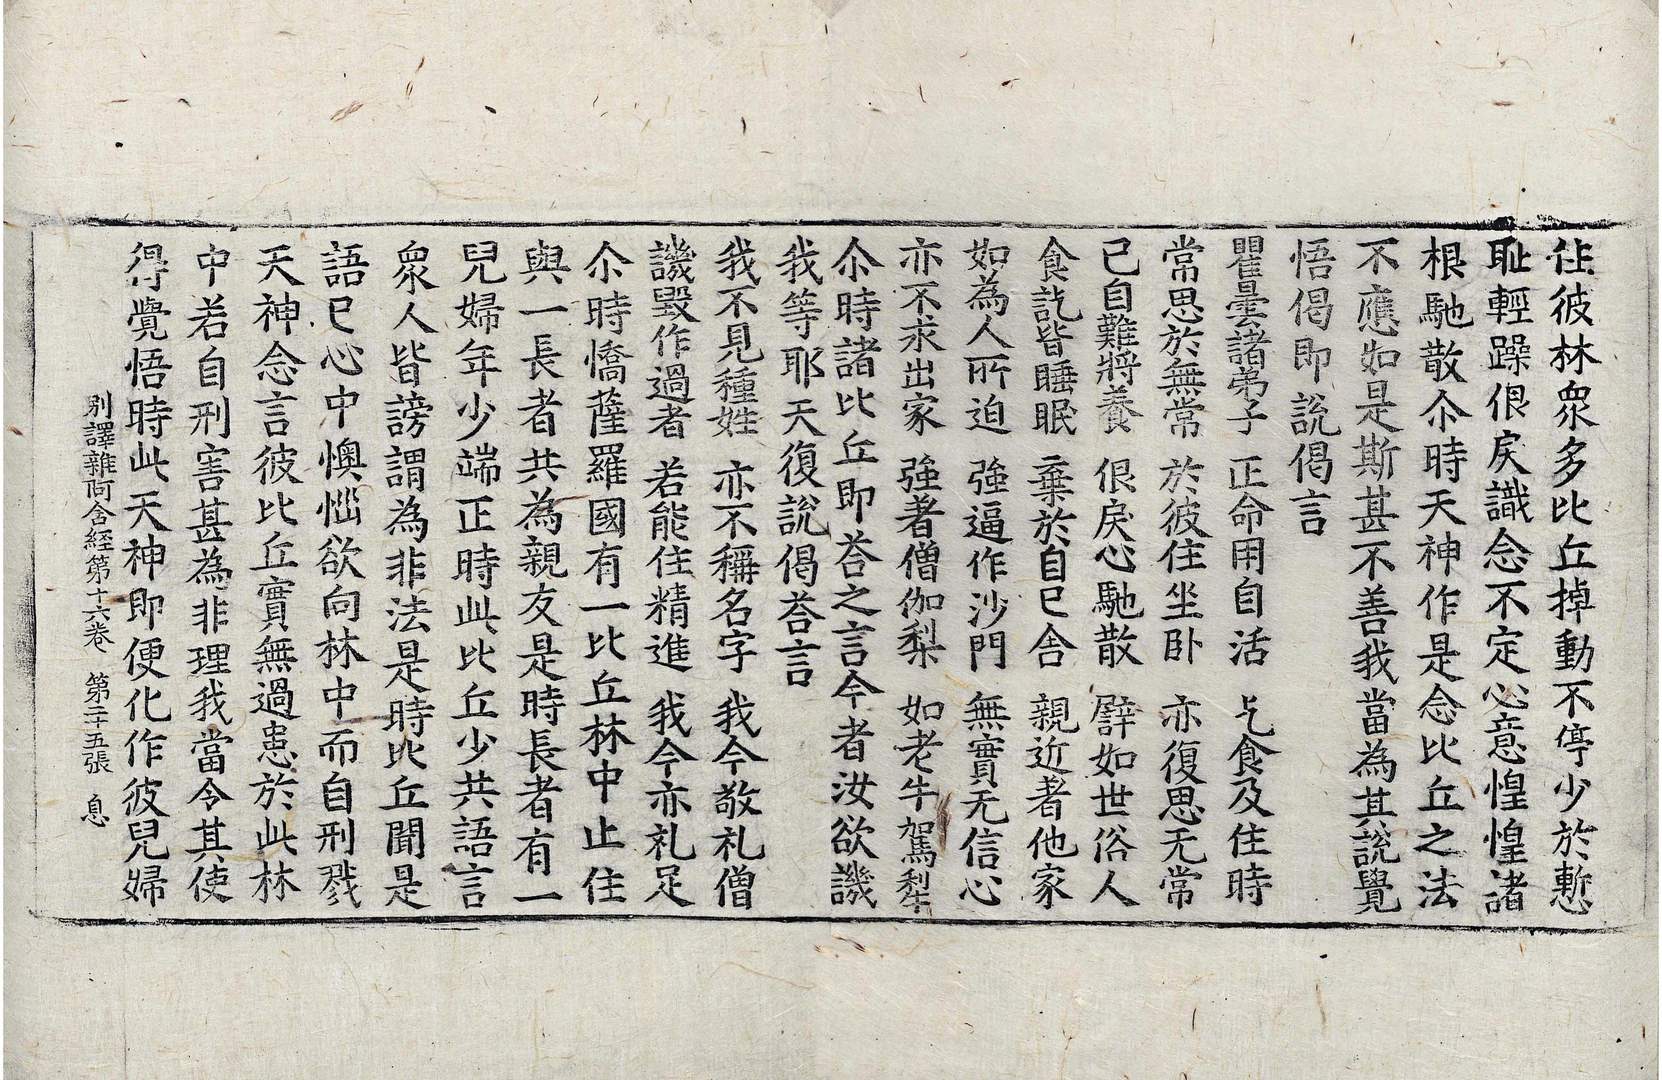 徃彼林衆多比丘掉動不停少於慙
耻輕躁佷戾識念不定心意惶惶諸
根馳散尒時天神作是念比丘之法
不應如是斯甚不善我當為其說覺
悟偈即說偈言
瞿曇諸弟子 正命用自活 乞食及住時
常思於無常 於彼住坐卧 亦復思无常
已自難將養 佷戾心馳散 譬如世俗人
食訖皆睡眠 棄於自已舍 親近者他家
如為人所迫 強逼作沙門 無實无信心
亦不求出家 強著僧伽梨 如老牛駕犁
尒時諸比丘即荅之言今者汝欲譏
我等耶天復說偈荅言
我不見種姓 亦不稱名字 我今敬礼僧
譏毀作過者 若能住精進 我今亦礼足
尒時憍薩羅國有一比丘林中止住
與一長者共為親友是時長者有一
兒婦年少端正時此比丘少共語言
衆人皆謗謂為非法是時比丘聞是
語已心中懊惱欲向林中而自刑戮
天神念言彼比丘實無過患於此林
中若自刑害甚為非理我當令其使
得覺悟時此天神即便化作彼兒婦
别譯雜阿含經第十六卷 第二十五張 息